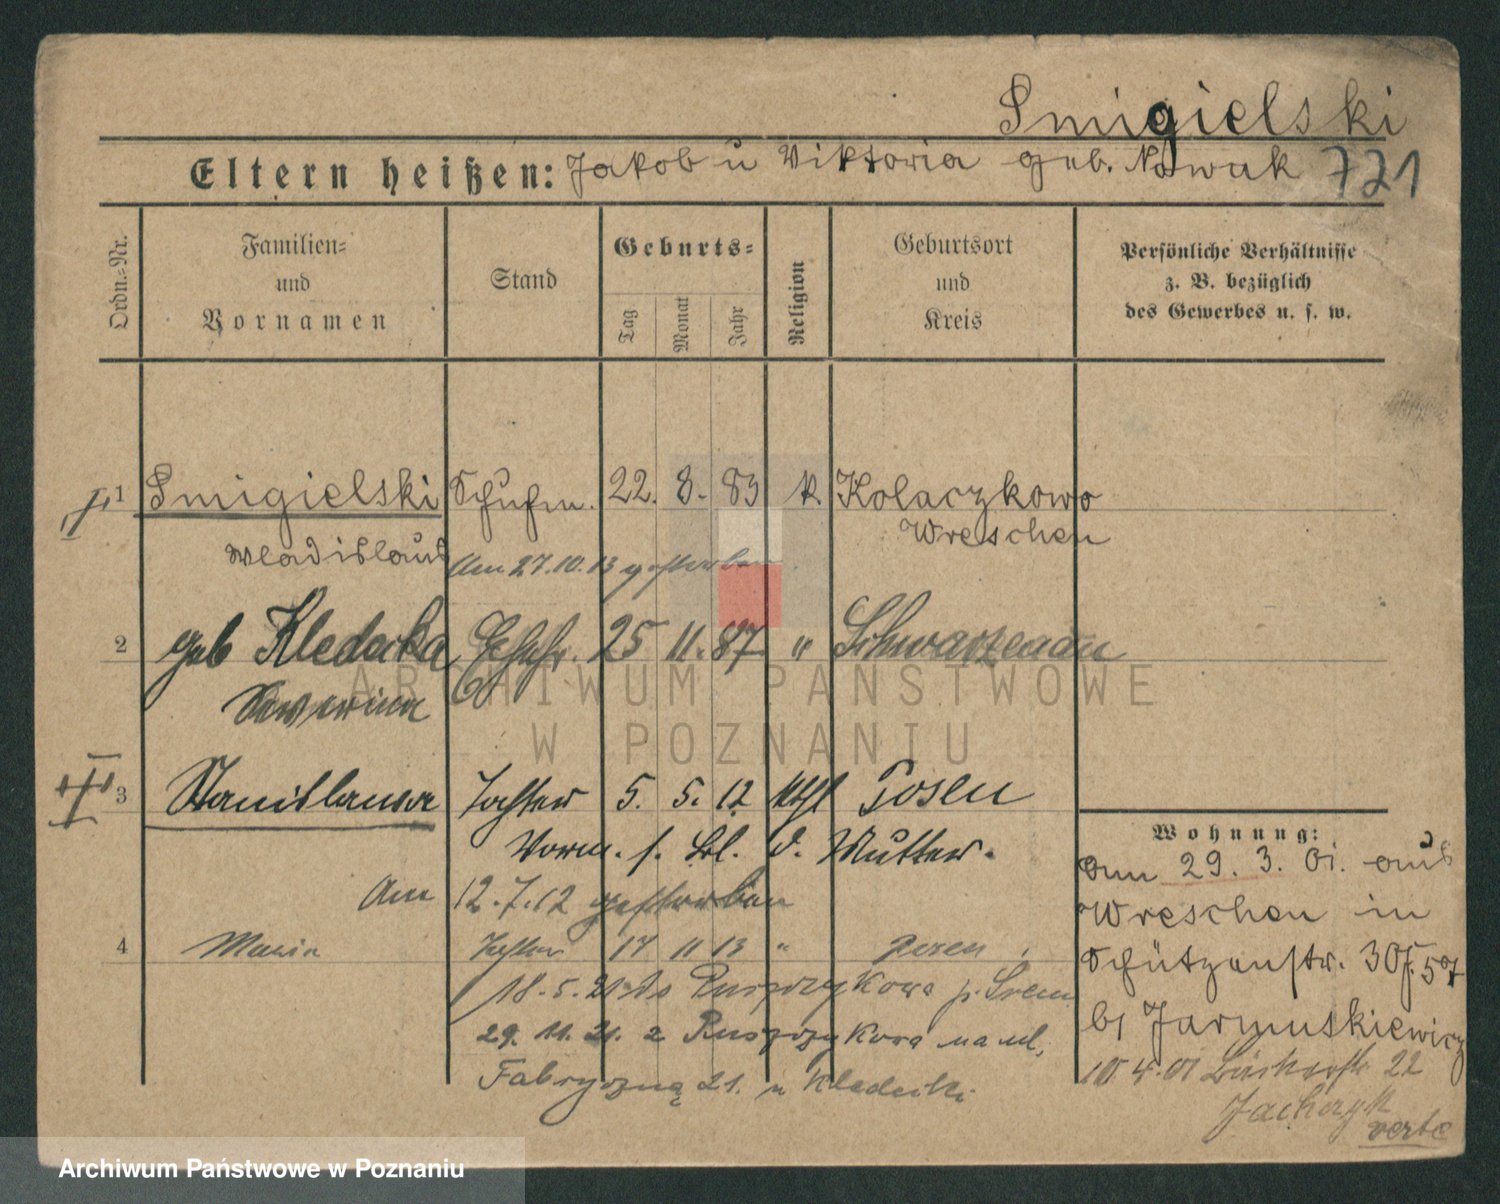 Smigielski
Eltern heißen: Jakob u Viktoria geb. Nowak 721
Ordn.-Nr.
Familien-
und
Vornamen
Stand
Geburts-
Tag
Monat
Jahr
Religion
Geburtsort
und
Kreis
Persönliche Verhältnisse
z. B. bezüglich
des Gewerbes u. s. w.
1 Smigielski Schuhm. 22. 8. 83 k. Kolaczkowo
Wreschen
Wladislaus Am 27.10.13 gestorben
2 geb Kledecka Ehefr. 25 11. 87 " Schwarzenau
Sewerina
3 Stanislawa Tochter 5. 5. 12 kthl Posen
Vorm. s. Bl. d. Mutter.
Am 12.7.12 gestorben
4 Maria Tochter 17 11 13 " Posen
18.5.21 do Puszczykowa p. Srem
29. 11. 21. z Puszczykowa na ul.
Fabryczną 21. u Kledecki
Wohnung:
am 29. 3. 01. aus
Wreschen in
Schützenstr. 30
b/ Jarmuskiewicz
10.4.01 Bäckerstr. 22
verte
ARCHIWUM PAŃSTWOWE
W POZNANIU
Archiwum Państwowe w Poznaniu